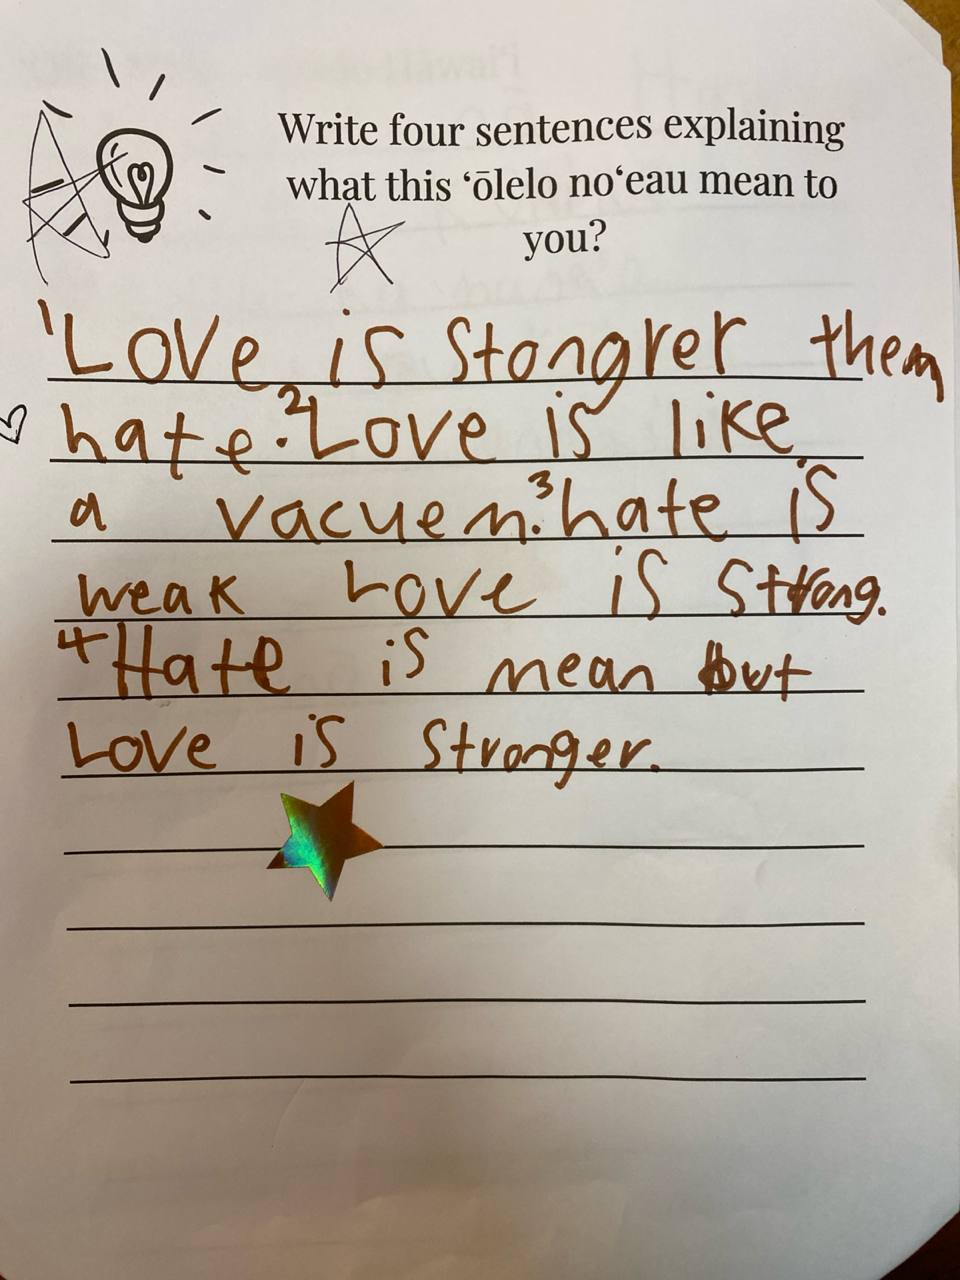 Write four sentences explaining
what this ʻōlelo noʻeau mean to
you?
¹Love is Stongrer them
hate.²Love is like
a vacuem.³hate is
weak Love is Strong.
⁴Hate is mean but
Love is Stronger.